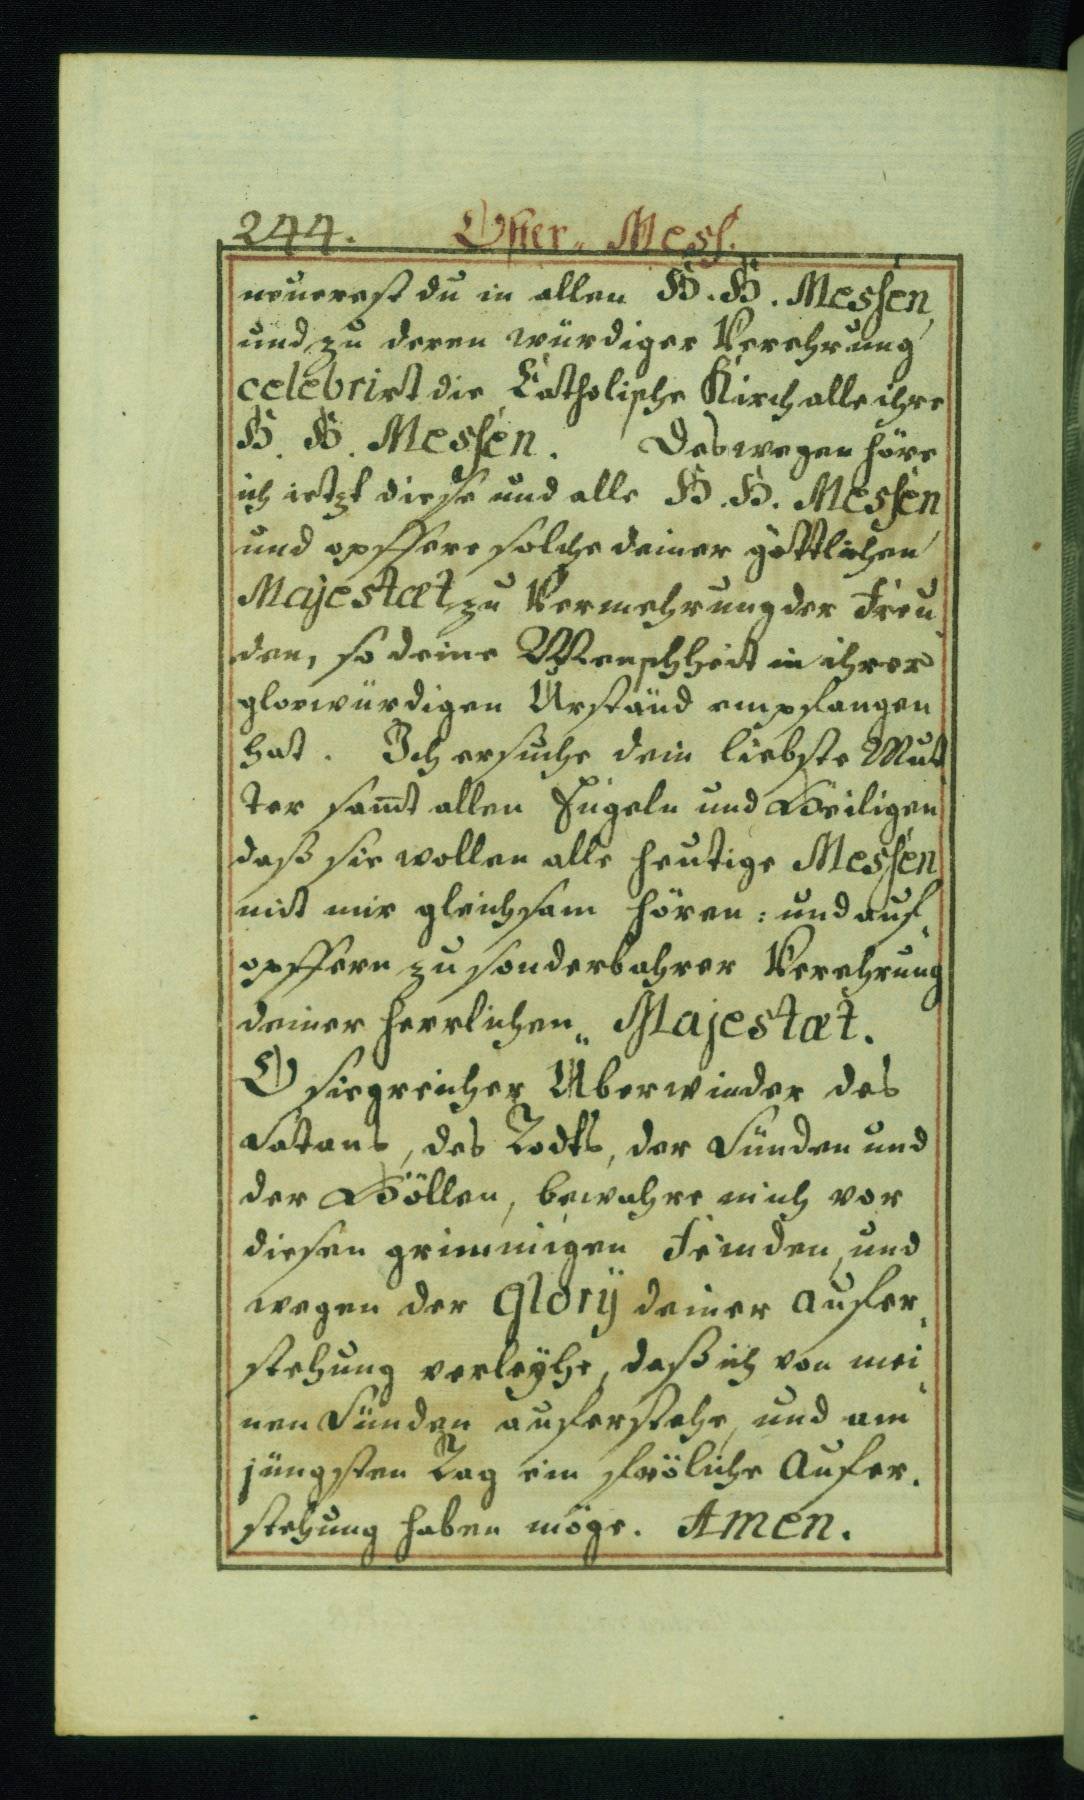 244. Oster„ Mess.
neuerest du in allen H. H. Messen,
und zu deren würdiger Verehrung
celebrirt die Catholische Kirch alle ihre
H. H. Messen. Deswegen höre
ich ietzt diese und alle H. H. Messen
und opffere solche deiner göttlichen
Majestæt, zu Vermehrung der Freu„
den, so deine Menschheit in ihrer
glorwürdigen Urständ empfangen
hat. Ich ersuche dein liebste Mut„
ter sam̅t allen Engeln und Heiligen
daß sie wollen alle heutige Messen
mit mir gleichsam hören: und auf„
opffern zu sonderbahrer Verehrung
deiner herrlichen„ Majestæt.
O siegreicher Überwinder des
Satans, des Todts, der Sünden und
der Höllen, bewahre mich vor
diesen grimmigen Feinden, und
wegen der Glorÿ deiner Aufer„
stehung verleÿhe, daß ich von mei„
nen Sünden auferstehe, und am
jüngsten Tag ein fröliche Aufer„
stehung haben möge. Amen.